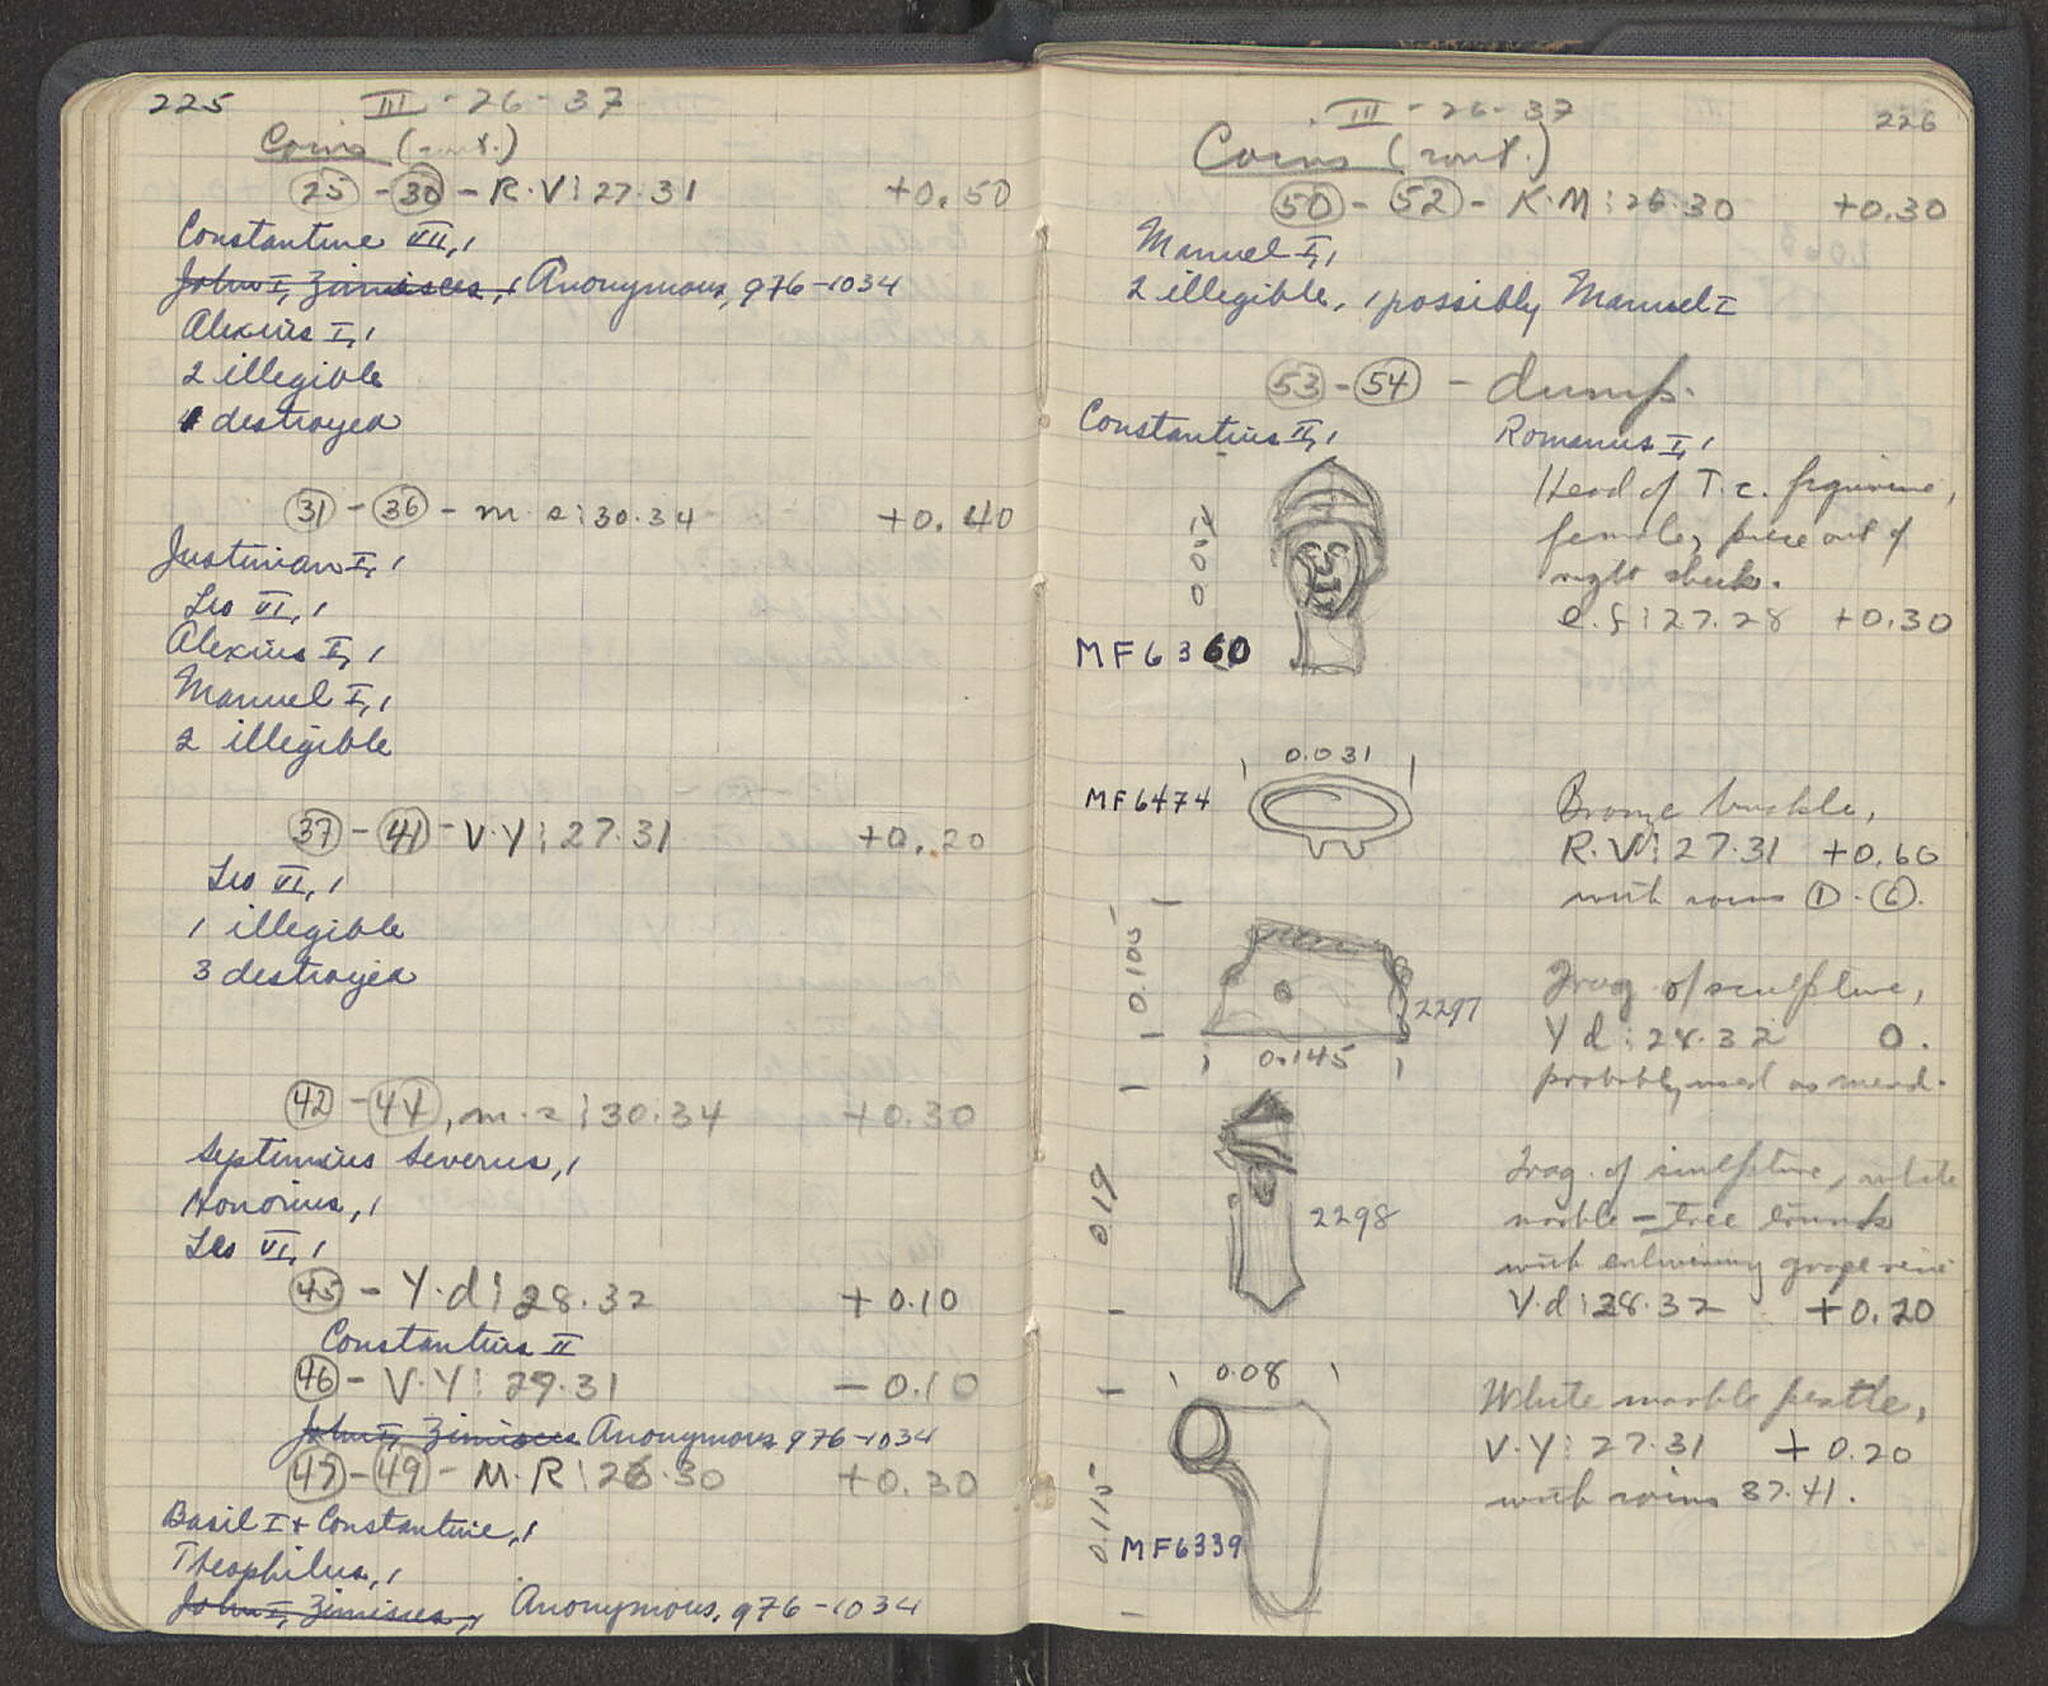 225
III - 26 - 37
Coins (cont.)
25 - 30 - R.V: 27.31 +0.50
Constantine VII, 1
John I, Zimisces, 1 Anonymous, 976-1034
Alexius I, 1
2 illegible
1 destroyed
31 - 36 - m. : 30.34 +0.40
Justinian I, 1
Leo VI, 1
Alexius I, 1
Manuel I, 1
2 illegible
37 - 41 - V.Y: 27.31 +0.20
Leo VI, 1
1 illegible
3 destroyed
42 - 44, m. : 30.34 +0.30
Septimius Severus, 1
Honorius, 1
Leo VI, 1
45 - Y.d: 28.32 +0.10
Constantius II
46 - V.Y: 29.31 -0.10
John I, Zimisces Anonymous 976-1034
47 - 49 - M.R: 26.30 +0.30
Basil I + Constantine, 1
Theophilus, 1
John I, Zimisces, 1 Anonymous, 976-1034
226
III - 26-37
Coins (cont.)
50 - 52 - K.M: 26.30 +0.30
Manuel I, 1
2 illegible, 1 possibly Manuel I
53 - 54 - dump.
Constantius II, 1 Romanus I, 1
Head of T.c. figurine,
female, piece out of
right cheek.
e.f: 27.28 +0.30
MF6360
0.031
MF6474
Bronze buckle,
R.V: 27.31 +0.60
with coins 1 - 6.
0.105
2297
0.145
Frag. of sculpture,
Yd: 28.32 0.
probably used as mend.
0.19
2298
Frag. of sculpture, white
marble - tree trunk
with entwining grape vine
V.d: 28.32 +0.20
0.08
0.115
MF6339
White marble pestle,
V.Y: 27.31 +0.20
with coins 37.41.